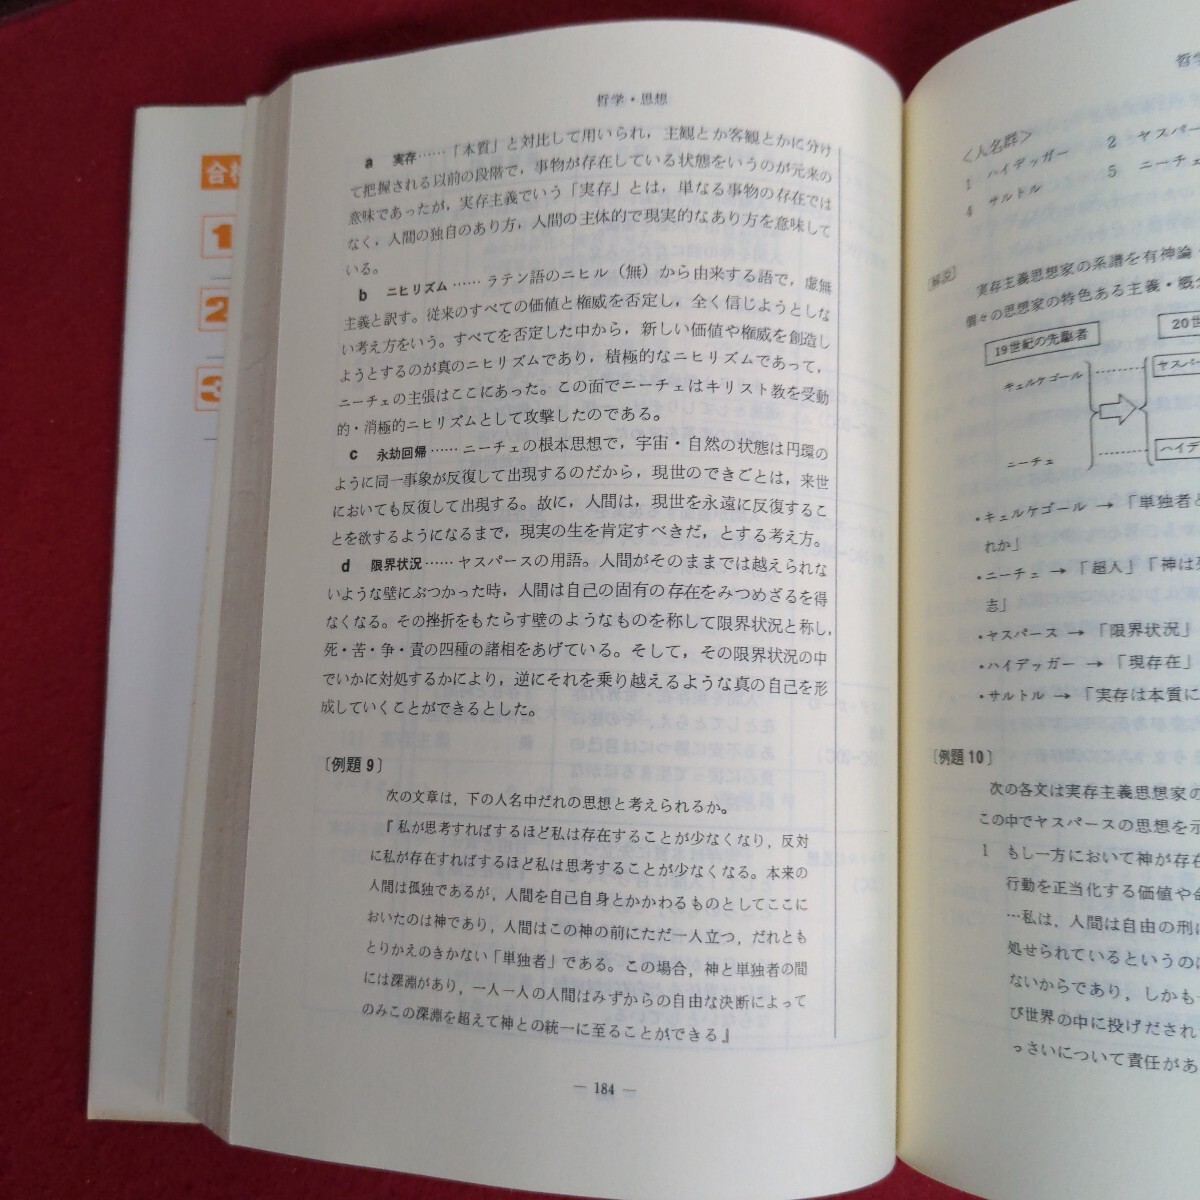 合格
1
2
3
哲学・思想
a 実存……「本質」と対比して用いられ，主観とか客観とかに分け
て把握される以前の段階で，事物が存在している状態をいうのが元来の
意味であったが，実存主義でいう「実存」とは，単なる事物の存在では
なく，人間の独自のあり方，人間の主体的で現実的なあり方を意味して
いる。
b ニヒリズム……ラテン語のニヒル（無）から由来する語で，虚無
主義と訳す。従来のすべての価値と権威を否定し，全く信じようとしな
い考え方をいう。すべてを否定した中から，新しい価値や権威を創造し
ようとするのが真のニヒリズムであり，積極的なニヒリズムであって，
ニーチェの主張はここにあった。この面でニーチェはキリスト教を受動
的・消極的ニヒリズムとして攻撃したのである。
c 永劫回帰……ニーチェの根本思想で，宇宙・自然の状態は円環の
ように同一事象が反復して出現するのだから，現世のできごとは，来世
においても反復して出現する。故に，人間は，現世を永遠に反復するこ
とを欲するようになるまで，現実の生を肯定すべきだ，とする考え方。
d 限界状況……ヤスパースの用語。人間がそのままでは越えられな
いような壁にぶつかった時，人間は自己の固有の存在をみつめざるを得
なくなる。その挫折をもたらす壁のようなものを称して限界状況と称し，
死・苦・争・責の四種の諸相をあげている。そして，その限界状況の中
でいかに対処するかにより，逆にそれを乗り越えるような真の自己を形
成していくことができるとした。
〔例題9〕
次の文章は，下の人名中だれの思想と考えられるか。
『私が思考すればするほど私は存在することが少なくなり，反対
に私が存在すればするほど私は思考することが少なくなる。本来の
人間は孤独であるが，人間を自己自身とかかわるものとしてここに
おいたのは神であり，人間はこの神の前にただ一人立つ，だれとも
とりかえのきかない「単独者」である。この場合，神と単独者の間
には深淵があり，一人一人の人間はみずからの自由な決断によって
のみこの深淵を超えて神との統一に至ることができる』
— 184 —
哲学
＜人名群＞
1 ハイデッガー 2 ヤスパー
4 サルトル 5 ニーチ
〔解説〕
実存主義思想家の系譜を有神論
個々の思想家の特色ある主義・概
19世紀の先駆者 20世
キェルケゴール ヤスパー
ニーチェ ハイデ
・キェルケゴール → 「単独者
れか」
・ニーチェ → 「超人」「神は
志」
・ヤスパース → 「限界状況」
・ハイデッガー → 「現存在」
・サルトル → 「実存は本質に
〔例題10〕
次の各文は実存主義思想家の
この中でヤスパースの思想を示
1 もし一方において神が存在
行動を正当化する価値や命
…私は，人間は自由の刑に
処せられているというのは
ないからであり，しかも
び世界の中に投げだされ
っさいについて責任があ